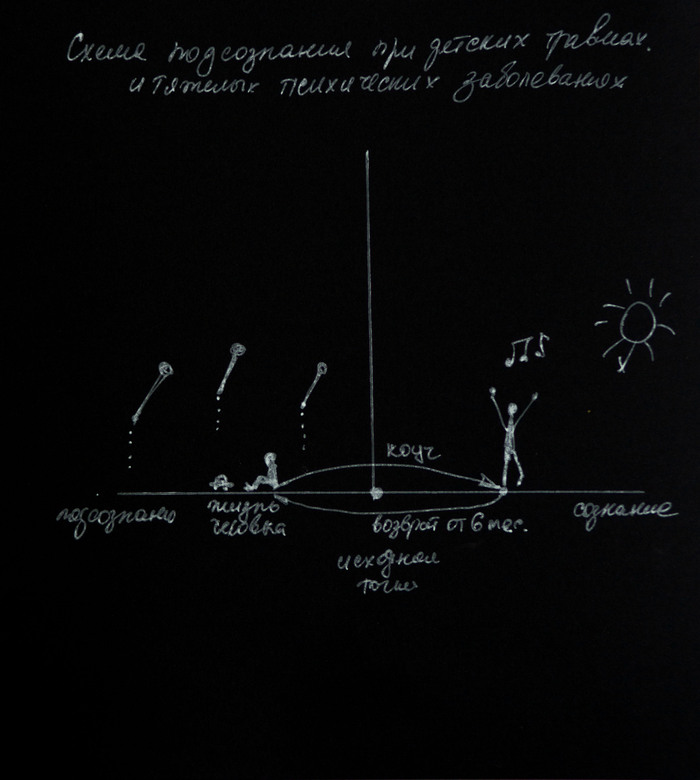 Схема подсознания при детских травмах.
и тяжелых психических заболеваниях
коуч
подсознание
жизнь
человка
возврат от 6 мес.
сознание
исходная
точка